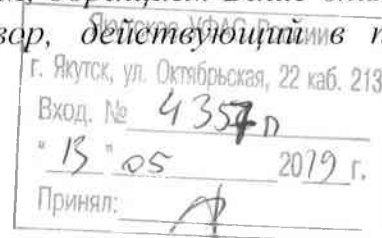 обращает Ваше
вор, действующий в п
Якутское УФАС России
г. Якутск, ул. Октябрьская, 22 каб. 213
Вход. № 4357п
"13" 05 2019 г.
Принял: